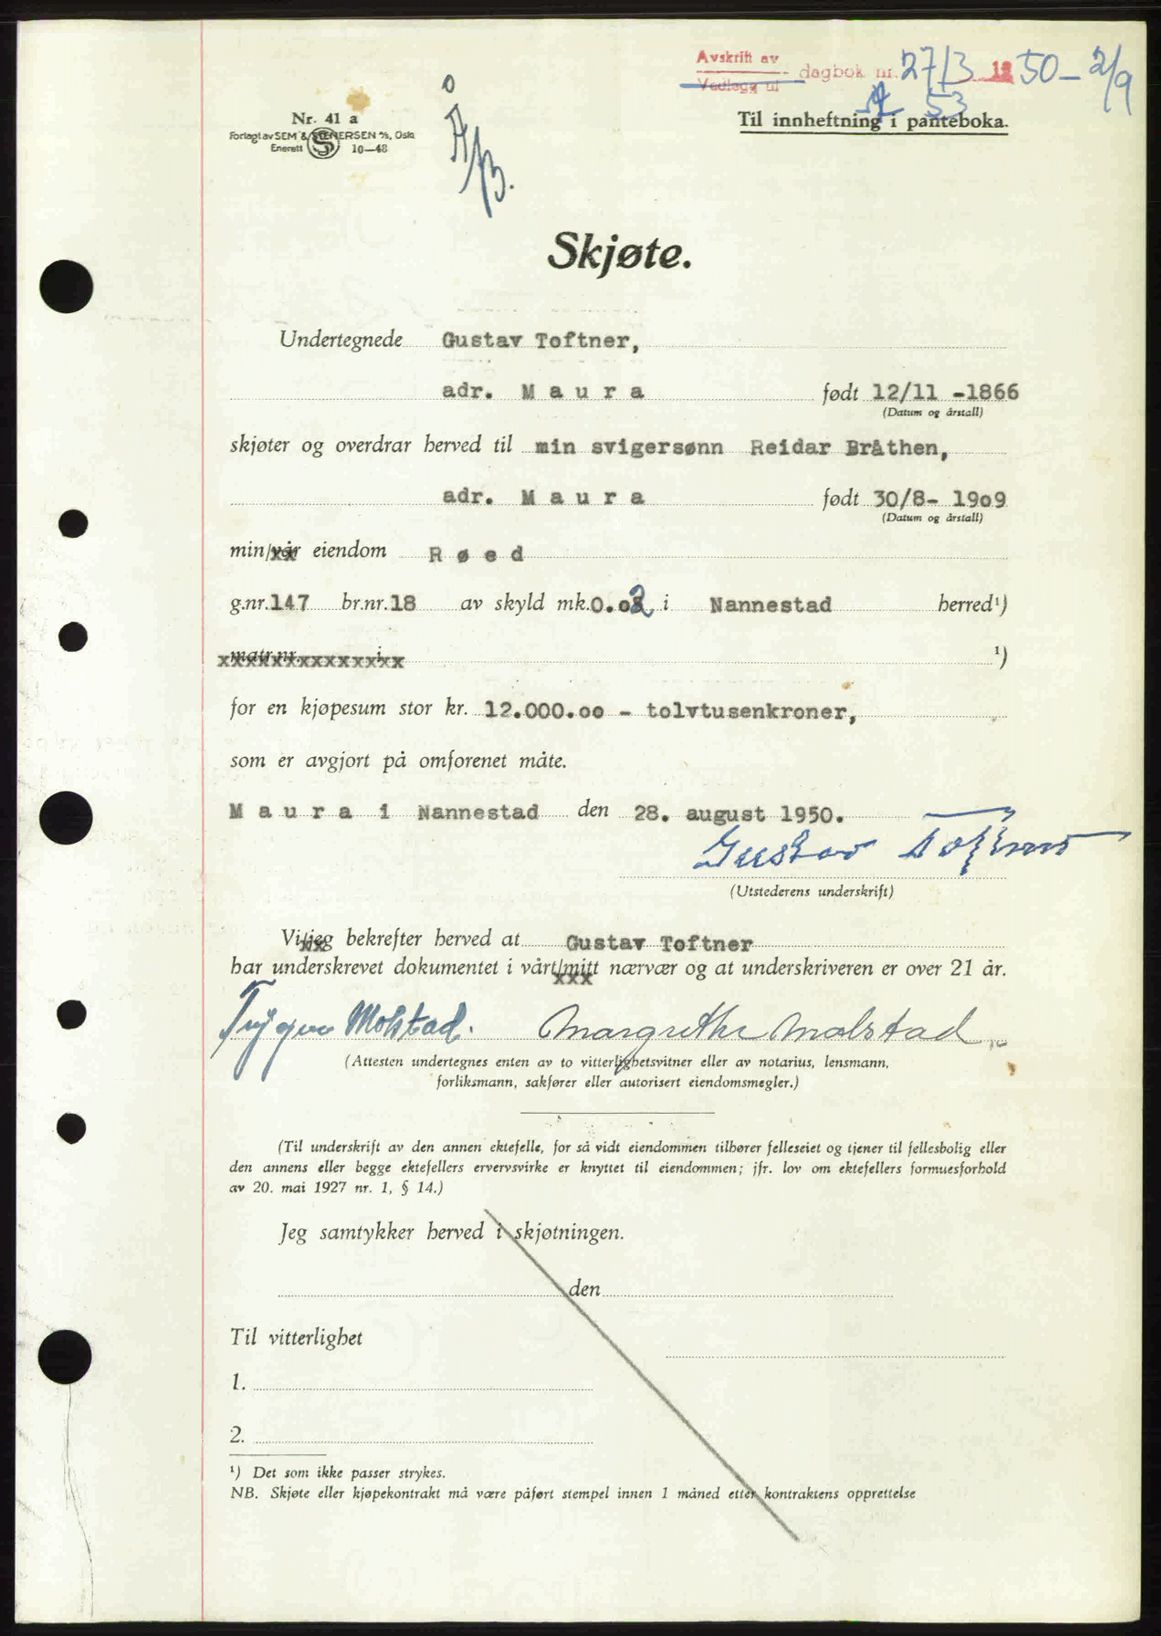 Avskrift av
Vedlegg til dagbok nr. 2713 1950-2/9
53
Nr. 41 a
Til innheftning i panteboka.
Forlagt av SEM & STENERSEN A/S, Oslo
Enerett S 10—48
A/B.
Skjøte.
Undertegnede Gustav Toftner,
adr. M a u r a født 12/11 -1866
(Datum og årstall)
skjøter og overdrar herved til min svigersønn Reidar Bråthen,
adr. M a u r a født 30/8- 1909
(Datum og årstall)
min/vår eiendom R ø e d
g.nr.147 br.nr.18 av skyld mk.0.02 i Nannestad herred¹)
matr.nr. i ¹)
for en kjøpesum stor kr. 12.000.00 - tolvtusenkroner,
som er avgjort på omforenet måte.
M a u r a i Nannestad den 28. august 1950.
Gustav Toftner
(Utstederens underskrift)
Vi/jeg bekrefter herved at Gustav Toftner
har underskrevet dokumentet i vårt/mitt nærvær og at underskriveren er over 21 år.
Trygve Molstad. Margrethe Molstad
(Attesten undertegnes enten av to vitterlighetsvitner eller av notarius, lensmann,
forliksmann, sakfører eller autorisert eiendomsmegler.)
(Til underskrift av den annen ektefelle, for så vidt eiendommen tilhører felleseiet og tjener til fellesbolig eller
den annens eller begge ektefellers ervervsvirke er knyttet til eiendommen; jfr. lov om ektefellers formuesforhold
av 20. mai 1927 nr. 1, § 14.)
Jeg samtykker herved i skjøtningen.
den
Til vitterlighet
1.
2.
¹) Det som ikke passer strykes.
NB. Skjøte eller kjøpekontrakt må være påført stempel innen 1 måned etter kontraktens opprettelse